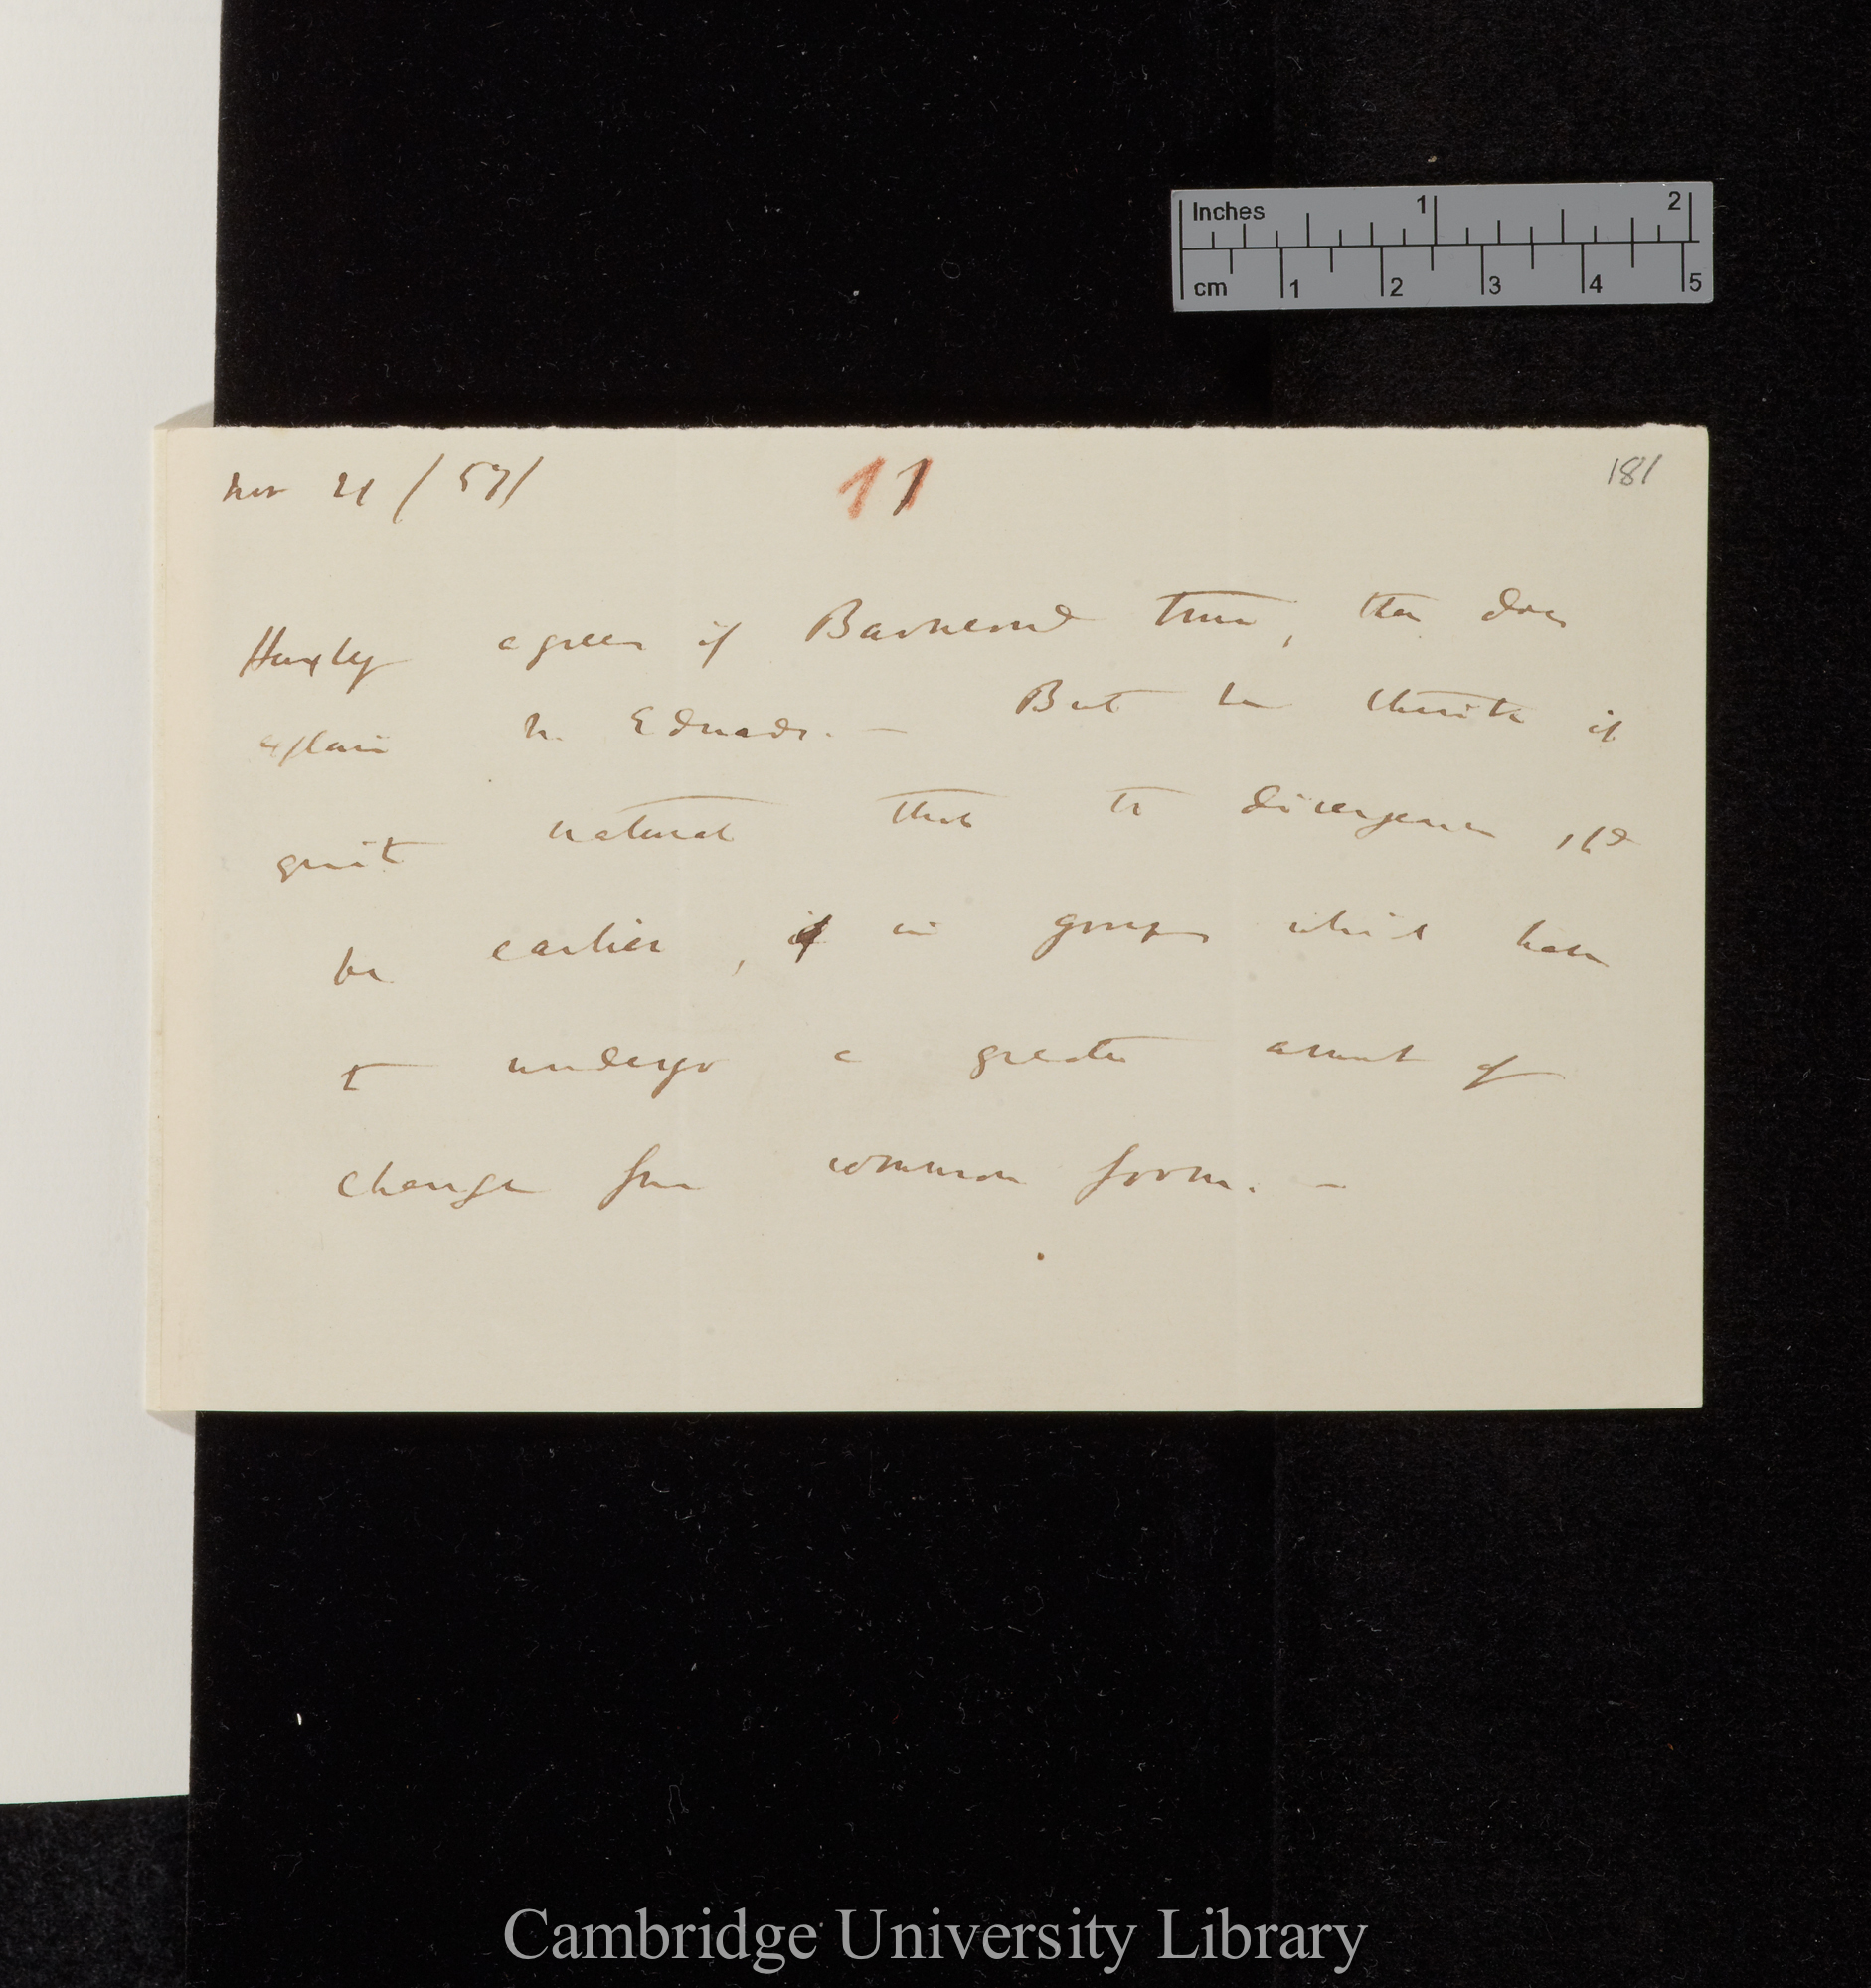 Inches 1 2
cm 1 2 3 4 5
Nov 21 / 57/ 11 181
Huxley agrees if Barneoud true, then does
explain M. Edwards. — But he thinks it
quite natural that the divergence shd
be earlier, in groups which have
to undergo a greater amount of
change from common form. —
Cambridge University Library